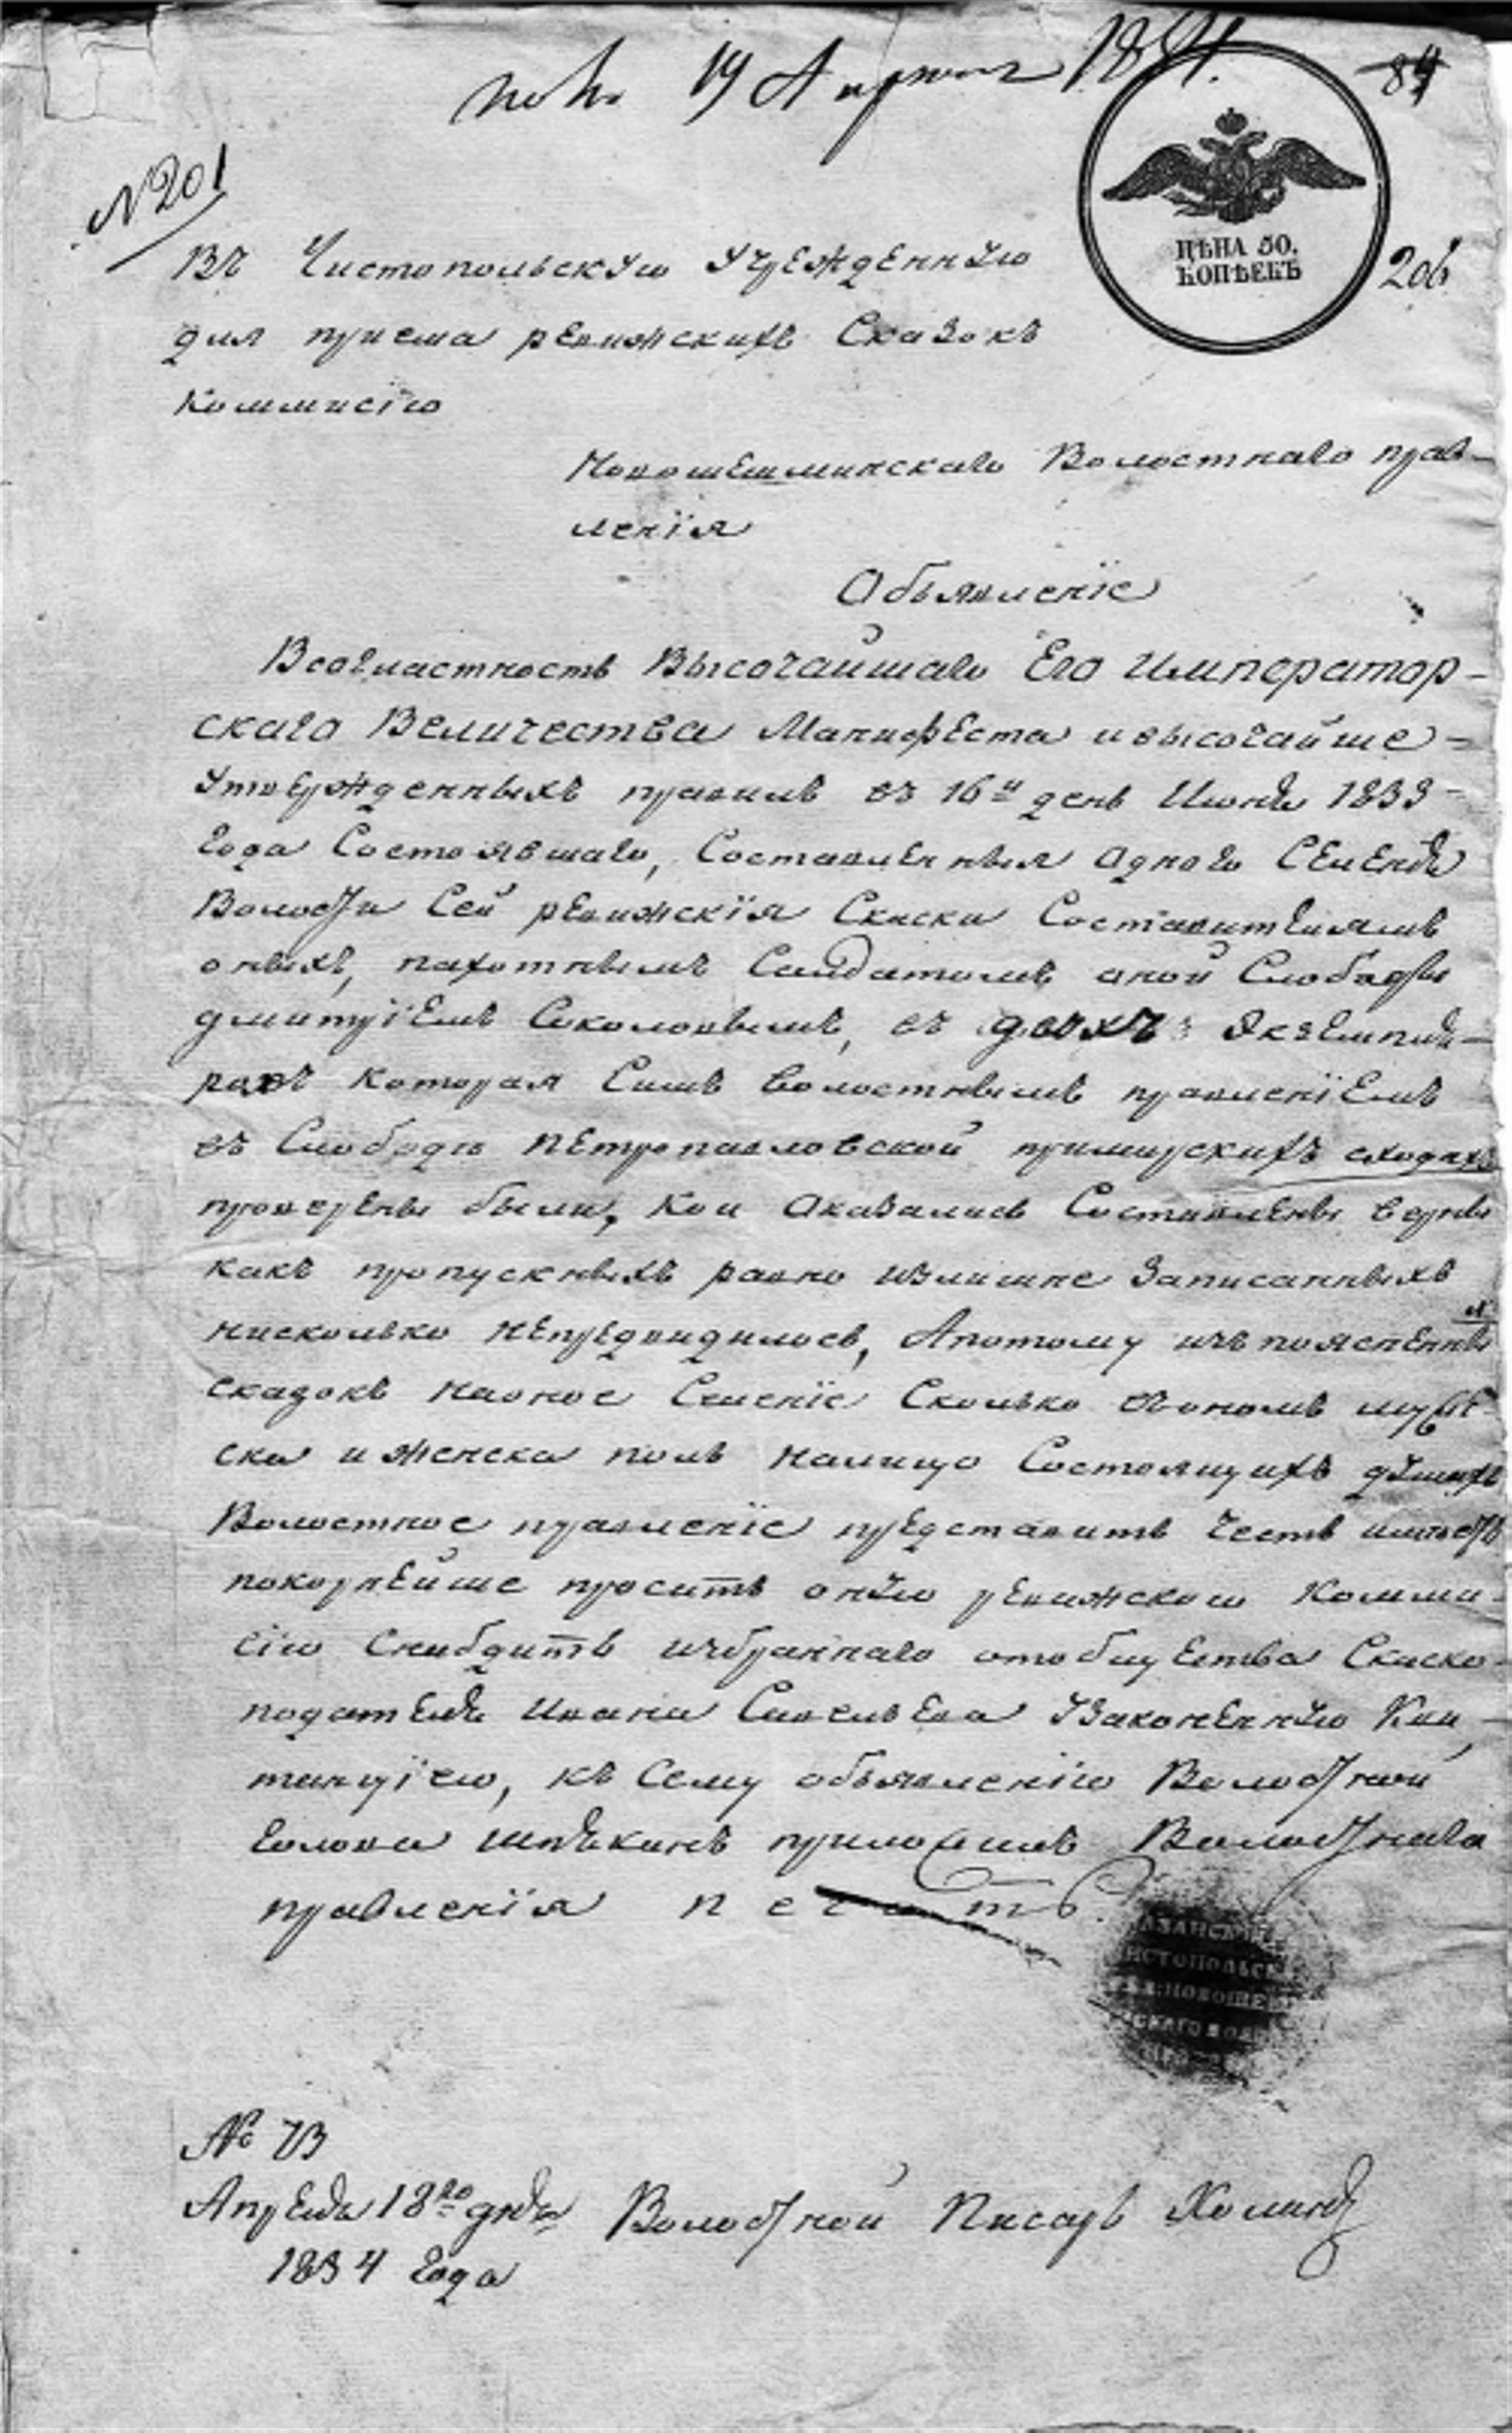 19 Апреля 1834.
84
№ 201
ЦѢНА 50.
КОПѢЕКЪ
206
Въ Чистопольскую Учрежденную
для приема ревижскихъ Сказокъ
Коммисiю
Новошешминскаго Волостнаго прав-
ленiя
Объявленiе
Всогластность Высочайшаго Его Император-
скаго Величества Манифеста и высочайше-
Утвержденныхъ правилъ въ 16й день Июня 1833
года Состоявшаго, Составленныя одного Селенiя
Волости Сей ревижскiя Скаски Составителямъ
оныхъ, пахотнымъ Салдатомъ оной Слободы
дмитрiемъ Соколовымъ, въ двухъ Экземпля-
рахъ которая Симъ волостнымъ правленiемъ
въ Слободе Петропавловской примирскихъ сходахъ
проверены были, кои оказались Составлены верны
какъ пропускныхъ равно излишне Записанныхъ
нисколько непредвидилось, Апотому изъ поясненны
сказокъ наоное Селенiе Сколько воономъ мужс
ска и женска полъ налицо Состоящихъ душахъ
Волостное правленiе представить честь имеетъ
покорнейше просить оную ревижскою Комми-
сiю Снабдить избраннаго отобщества Скаско-
подателя Ивана Савельева Узаконенную Кви-
танцiею, къ Сему объявленiю Волостной
голова приложилъ Волостнаго
правленiя печать.
КАЗАНСКОЙ
ЧИСТОПОЛЬСК
НОВОШЕ
СКАГО ВОЛ
№ 73
Апреля 18го дня Волостной Писарь
1834 года